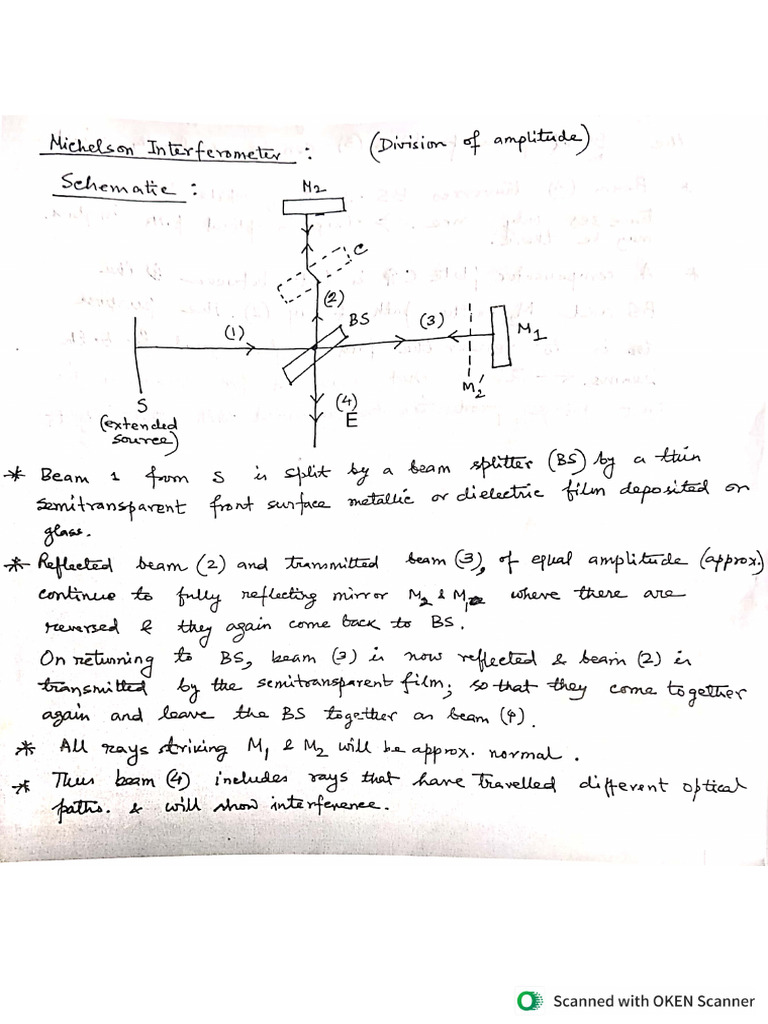 Michelson Interferometer : (Division of amplitude)
Schematic :
M2
C
(2)
BS
(1)
(3)
M1
M2'
S
(extended
source)
(4)
E
* Beam 1 from S is split by a beam splitter (BS) by a thin
semitransparent front surface metallic or dielectric film deposited on
glass.
* Reflected beam (2) and transmitted beam (3), of equal amplitude (approx.)
continue to fully reflecting mirror M2 & M1, where there are
reversed & they again come back to BS.
On returning to BS, beam (3) is now reflected & beam (2) is
transmitted by the semitransparent film; so that they come together
again and leave the BS together as beam (4).
* All rays striking M1 & M2 will be approx. normal.
* Thus beam (4) includes rays that have travelled different optical
paths. & will show interference.
Scanned with OKEN Scanner